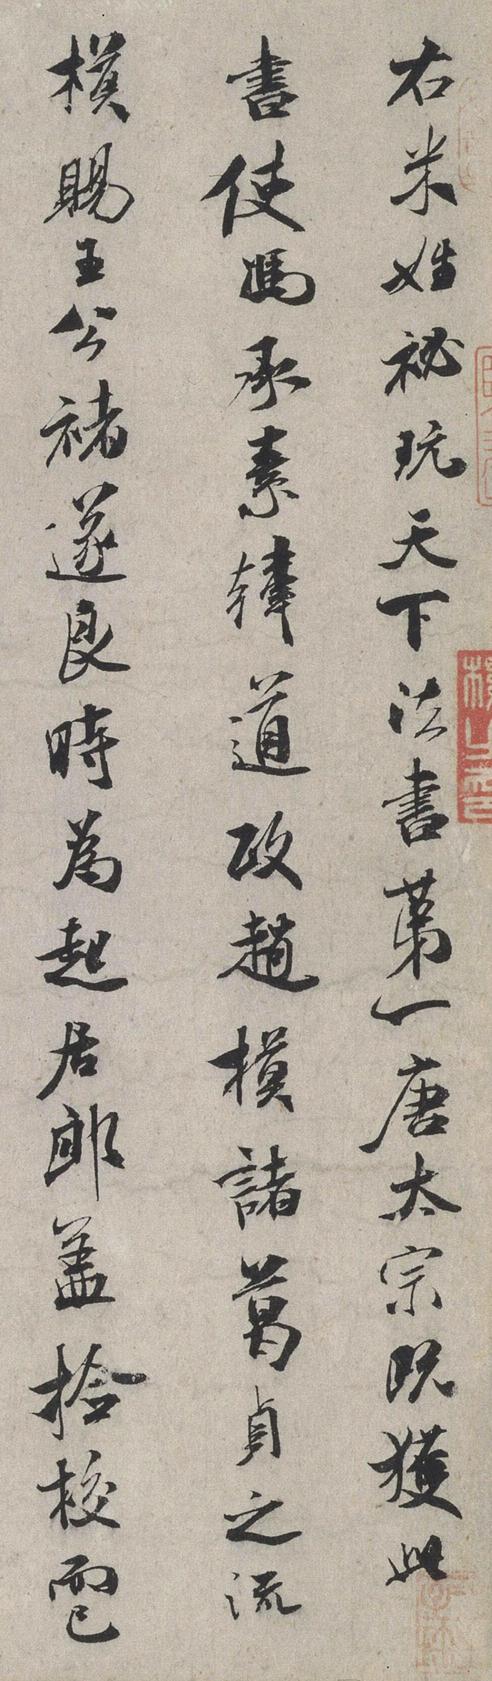 右米姓祕玩天下法書第一唐太宗既獲此
書使馮承素韓道政趙模諸葛貞之流
模賜王公褚遂良時為起居郎蓋檢校而已